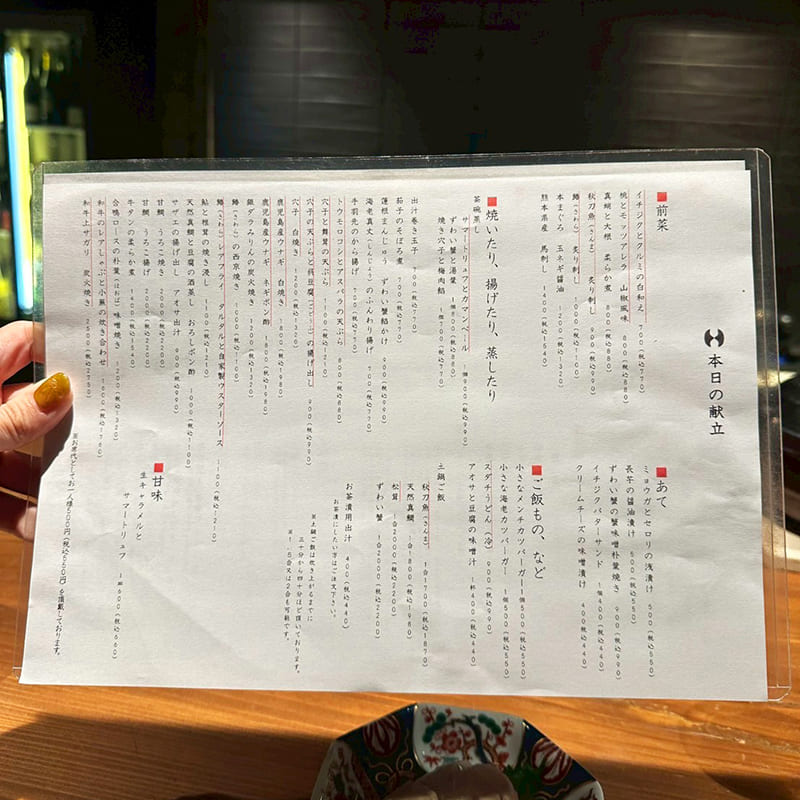 本日の献立
前菜
イチジクとクルミの白和え 700(税込770)
桃とモッツアレラ 山椒風味 800(税込880)
真蛸と大根 柔らか煮 800(税込880)
秋刀魚(さんま) 炙り刺し 900(税込990)
鰆(さわら) 炙り刺し 1000(税込1100)
本まぐろ 玉ネギ醤油 1200(税込1320)
熊本県産 馬刺し 1400(税込1540)
焼いたり、揚げたり、蒸したり
茶碗蒸し
サマートリュフとカマンベール 1個900(税込990)
ずわい蟹と湯葉 1個800(税込880)
焼き穴子と梅肉餡 1個700(税込770)
出汁巻き玉子 700(税込770)
茄子のそぼろ煮 700(税込770)
蓮根まんじゅう ずわい蟹餡かけ 900(税込990)
海老真丈(しんじょう)のふんわり揚げ 700(税込770)
手羽先のから揚げ 700(税込770)
トウモロコシとアスパラの天ぷら 800(税込880)
穴子と舞茸の天ぷら 1100(税込1210)
穴子の天ぷらと呉豆腐(ごどうふ)の揚げ出し 900(税込990)
穴子 白焼き 1200(税込1320)
鹿児島産ウナギ 白焼き 1800(税込1980)
鹿児島産ウナギ ネギポン酢 1800(税込1980)
銀ダラみりんの炭火焼き 1200(税込1320)
鰆(さわら)の西京焼き 1000(税込1100)
鰆(さわら)レアフライ タルタルと自家製ウスターソース 1100(税込1210)
鮎と椎茸の焼き浸し 1100(税込1210)
天然真鯛と豆腐の酒蒸し おろしポン酢 1000(税込1100)
サザエの揚げ出し アオサ出汁 900(税込990)
甘鯛 うろこ焼き 2000(税込2200)
甘鯛 うろこ揚げ 2000(税込2200)
牛タンの柔らか煮 1400(税込1540)
合鴨ロースの朴葉(ほおば)味噌焼き 1200(税込1320)
和牛のレアしゃぶと小蕪の炊き合わせ 1600(税込1760)
和牛上サガリ 炭火焼き 2500(税込2750)
あて
ミョウガとセロリの浅漬け 500(税込550)
長芋の醤油漬け 500(税込550)
ずわい蟹の蟹味噌朴葉焼き 900(税込990)
イチジクバターサンド 1個400(税込440)
クリームチーズの味噌漬け 400(税込440)
ご飯もの、など
小さなメンチカツバーガー 1個500(税込550)
小さな海老カツバーガー 1個500(税込550)
スダチうどん(冷) 900(税込990)
アオサと豆腐の味噌汁 1杯400(税込440)
土鍋ご飯
秋刀魚(さんま) 1合1700(税込1870)
天然真鯛 1合1800(税込1980)
松茸 1合2000(税込2200)
ずわい蟹 1合2000(税込2200)
お茶漬用出汁 400(税込440)
お茶漬にしたい方はご注文下さい。
※土鍋ご飯は炊き上がるまでに
三十分から四十分ほど頂いております。
※1.5合又は2合も可能です。
甘味
生キャラメルと
サマートリュフ 1皿600(税込660)
※お席代としてお一人様500円(税込550円)を頂戴しております。